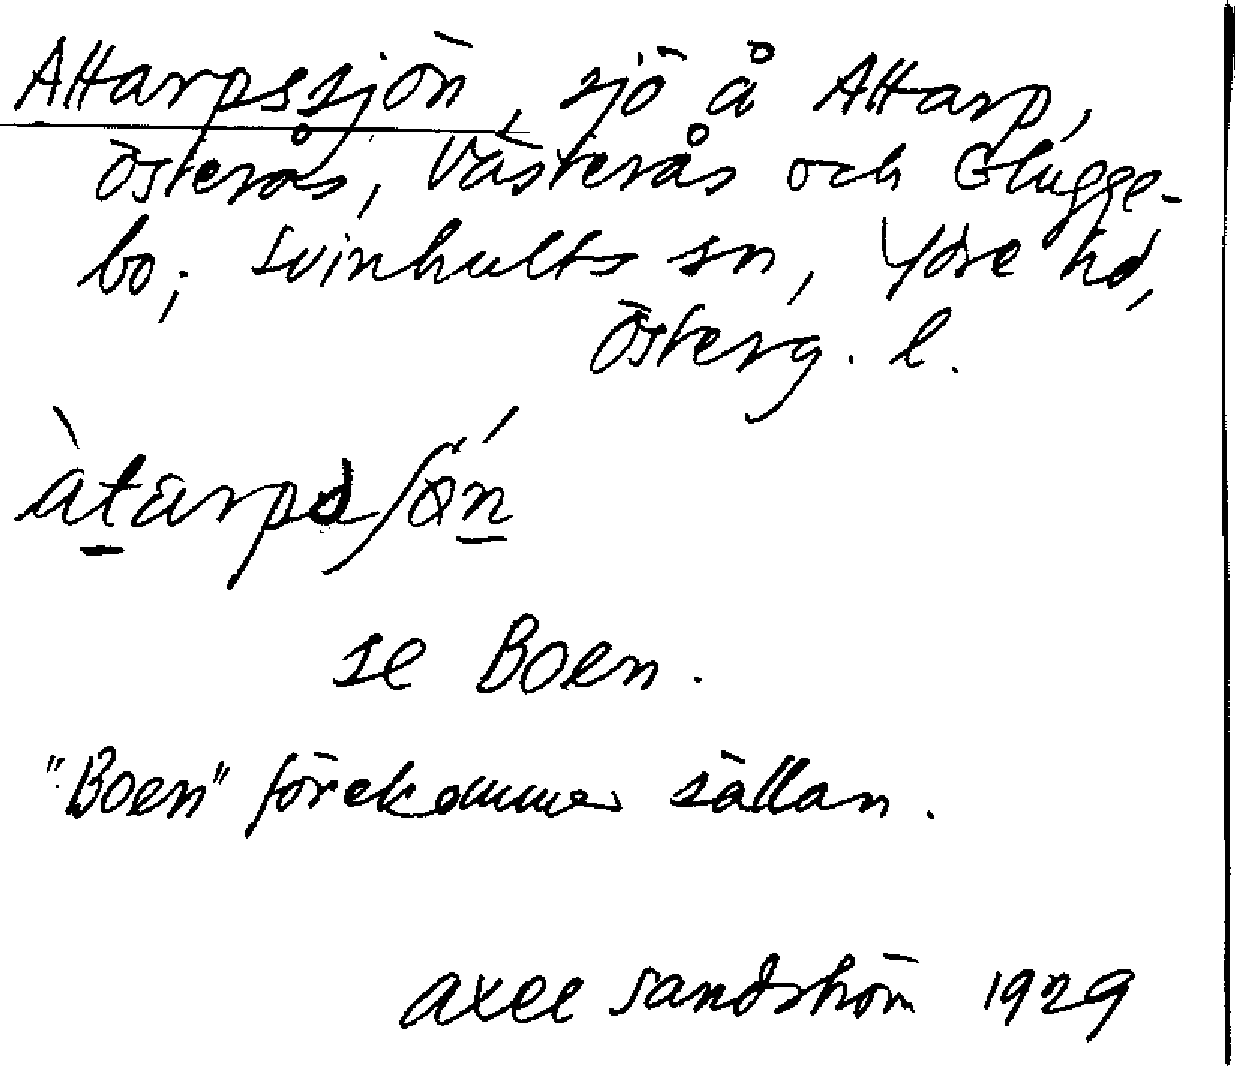 Attarpssjön, sjö å Attarp,
Österås, Västerås och Glugge-
bo; Svinhults sn, Ydre hd,
Österg. l.
se Boen.
"Boen" förekommer sällan.
Axel Sandström 1929